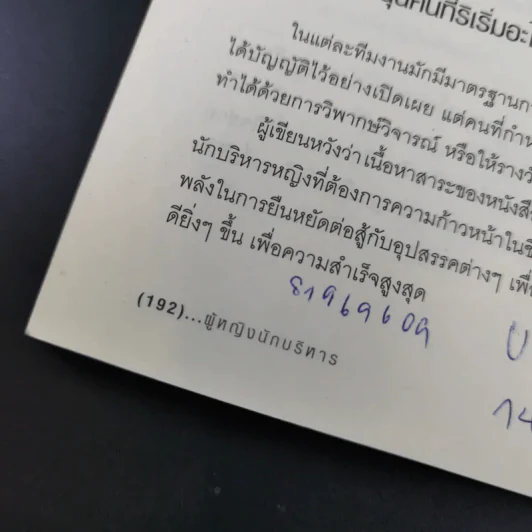 ที่ริเริ่มอะ
ในแต่ละทีมงานมักมีมาตรฐานกา
ได้บัญญัติไว้อย่างเปิดเผย แต่คนที่กำห
ทำได้ด้วยการวิพากษ์วิจารณ์ หรือให้รางวั
ผู้เขียนหวังว่า เนื้อหาสาระของหนังสื
นักบริหารหญิงที่ต้องการความก้าวหน้าใน
พลังในการยืนหยัดต่อสู้กับอุปสรรคต่างๆ เพื่
ดียิ่งๆ ขึ้น เพื่อความสำเร็จสูงสุด
(192)...ผู้หญิงนักบริหาร
14